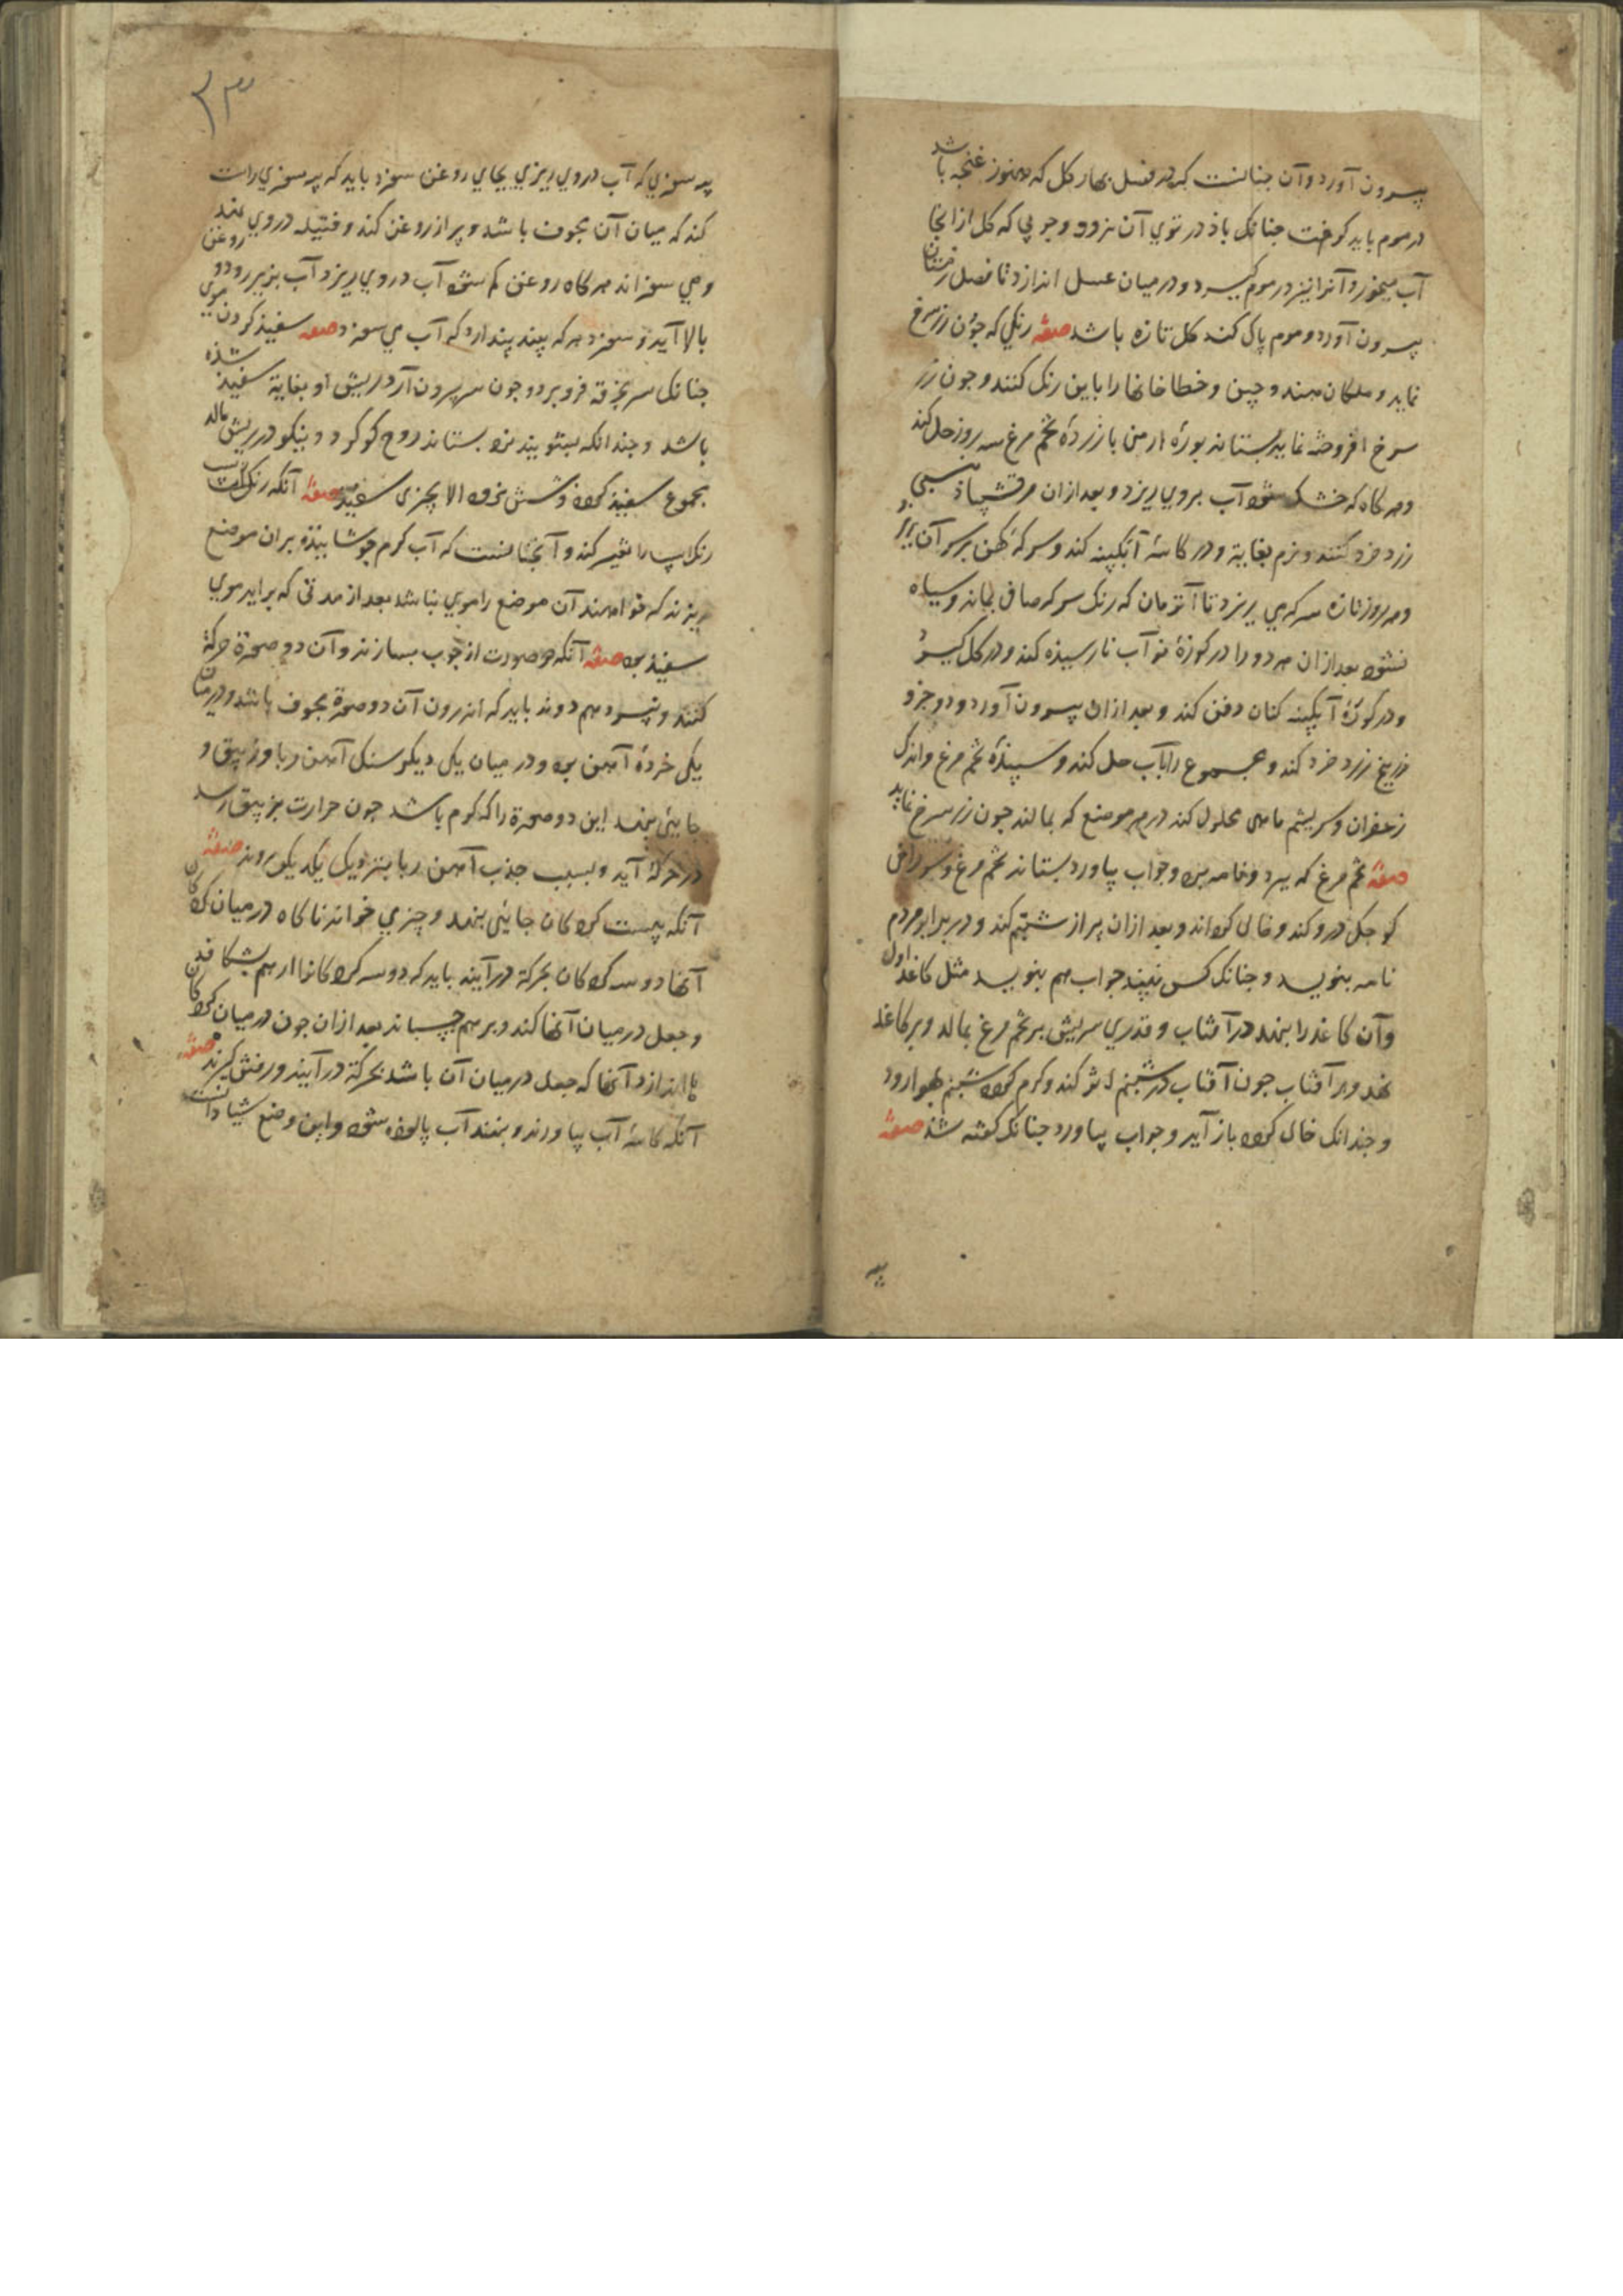 بیرون آورد و آن چنانست که در فصل بهار گل که هنوز غنچه باشد
در موم باید گرفت چنانک باذ در توی آن نرود و چوبی که گل از آنجا
آب میخورد آنرا نیز در موم گیرد و در میان عسل اندازد تا فصل زمستان
بیرون آورد و موم پاک کند گل تازه باشد صفة رنکی که چون زر سرخ
نماید و ملکان هند و چین و خطا خانها را باین رنک کنند و چون زر
سرخ افروخته نماید بستاند بورهٔ ارمن با زردهٔ تخم مرغ سه روز حل کند
و هر کاه که خشک شوذ آب بروی ریزد و بعد از آن مرقشیثاء
زرد خرد کنند و نرم بغایة و در کاسهٔ آبگینه کند و سرکهٔ کهن بر سر آن
و هر روز تازه سرکه می ریزد تا آنزمان که رنک سرکه صافی بماند و سیاه
نشوذ بعد از آن هر دو را در کوزهٔ نو آب نارسیذه کند و در گل گیرد
و در کوزهٔ آبگینه کنان دفن کند و بعد از آن بیرون آورد و دو جزو
زرنیخ زرد خرد کند و مجموع را بآب حل کند و سپیذهٔ تخم مرغ و اندک
زعفران و سریشم ماهی محلول کند در هر موضع که بمالند چون زر سرخ نماید
صفة تخم مرغ که بپرد و نامه برد و جواب بیاورد بستاند تخم مرغ و سوراخی
کوچک درو کند و خالی کرداند و بعد از آن پر از شبنم کند و در برابر مردم
نامه بنویسد و چنانک کس نبیند جواب هم بنویسد مثل کاغذ اول
و آن کاغذ را بنهد در آفتاب و قدری سریش بر تخم مرغ بمالد و بر کاغذ
نهد و در آفتاب چون آفتاب در شبنم اثر کند و گرم گردد شبنم بهوا رود
و چندانک خالی گردد باز آید و جواب بیاورد چنانک گفته شذ صفة
پیه
۳۳
پیه سوزی که آب در وی ریزی بجای روغن سوزد باید که پیه سوزی راست
کند که میان آن مجوف باشد و پر از روغن کند و فتیله در وی نهد
و می سوزاند هر کاه روغن کم شوذ آب در وی ریزد آب بزیر رود و روغن
بالا آید و سوزد هر که بیند پندارد که آب می سوزد صفة سفیذ کردن موی
چنانک سر بخرقه فرو برد و چون سر بیرون آرد ریش او بغایة سفیذ شذه
باشد و چندانکه بشویند نرود بستاند دوح کوکرد و نیکو در ریش مالد
مجموع سفیذ گردد و شستن نرود الا بچیزی صفة آنکه رنک اسب
رنک اسپ را تغییر کند و آنچنانست که آب گرم جوشانیذه بران موضع
ریزند که خواهند آن موضع را موی نباشد بعد از مدتی که براید موی
سفیذ بود صفة آنکه دو صورت از چوب بسازند و آن دو صورة حرکة
کنند و پیش هم دوند باید که اندرون آن دو صورة مجوف باشد و در میان
یکی خردهٔ آهن بود و در میان یکی دیگر سنک آهن ربا و زیبق و
جائی نهند این دو صورة را که گرم باشد چون حرارت بزیبق رسد
در حرکة آید و بسبب جذب آهن ربا بنزدیک یکدیگر روند صفة
آنکه پوست گردکان جائی نهد و چیزی خواند ناگاه در میان گردکان
آنها دو سه گردکان بحرکة درآیند باید که دو سه گردکانرا از هم بشکافد
و جعل در میان آنها کند و بر هم چسباند بعد از آن چون در میان گردکان
ها اندازد آنها که جعل در میان آن باشد بحرکة درآیند و رفتن گیرند صفة
آنکه کاسهٔ آب بیاورند و بنهند آب پالوده شوذ و این وضع شیادانست